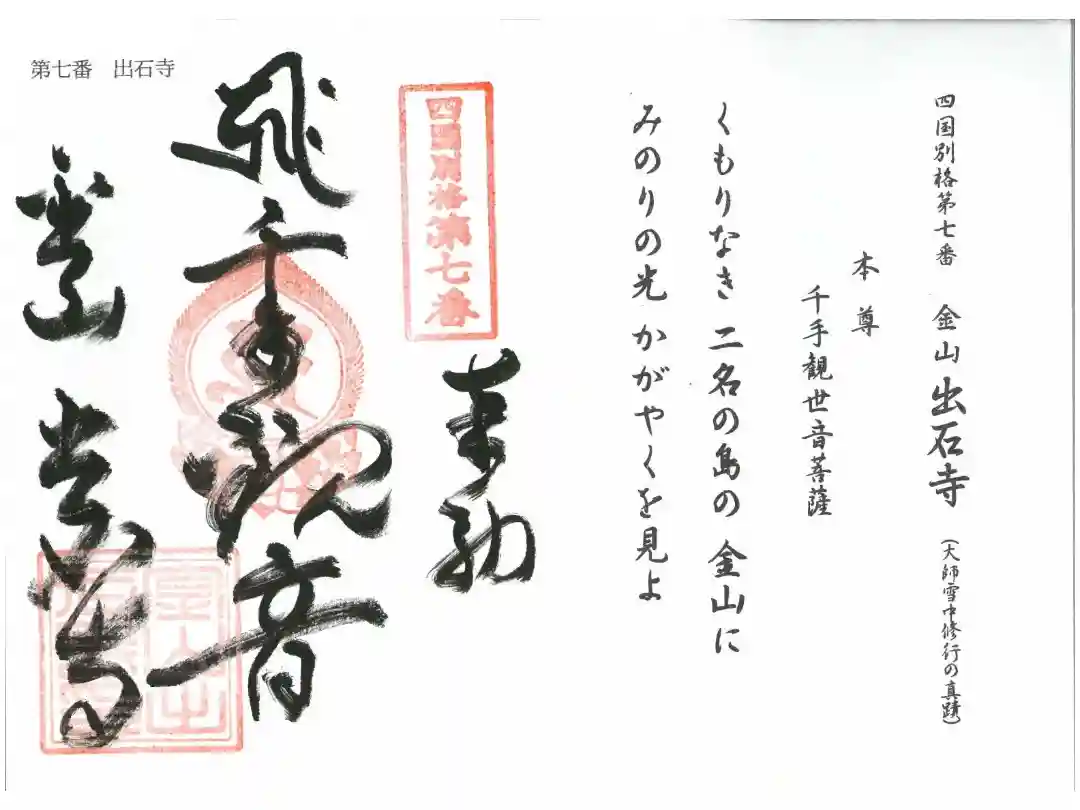 第七番 出石寺
四国別格第七番 金山 出石寺 (大師雪中修行の真蹟)
本尊
千手観世音菩薩
くもりなき 二名の島の 金山に
みのりの光 かがやくを見よ
四國別格第七番
奉納
千手観音
金山
出石寺